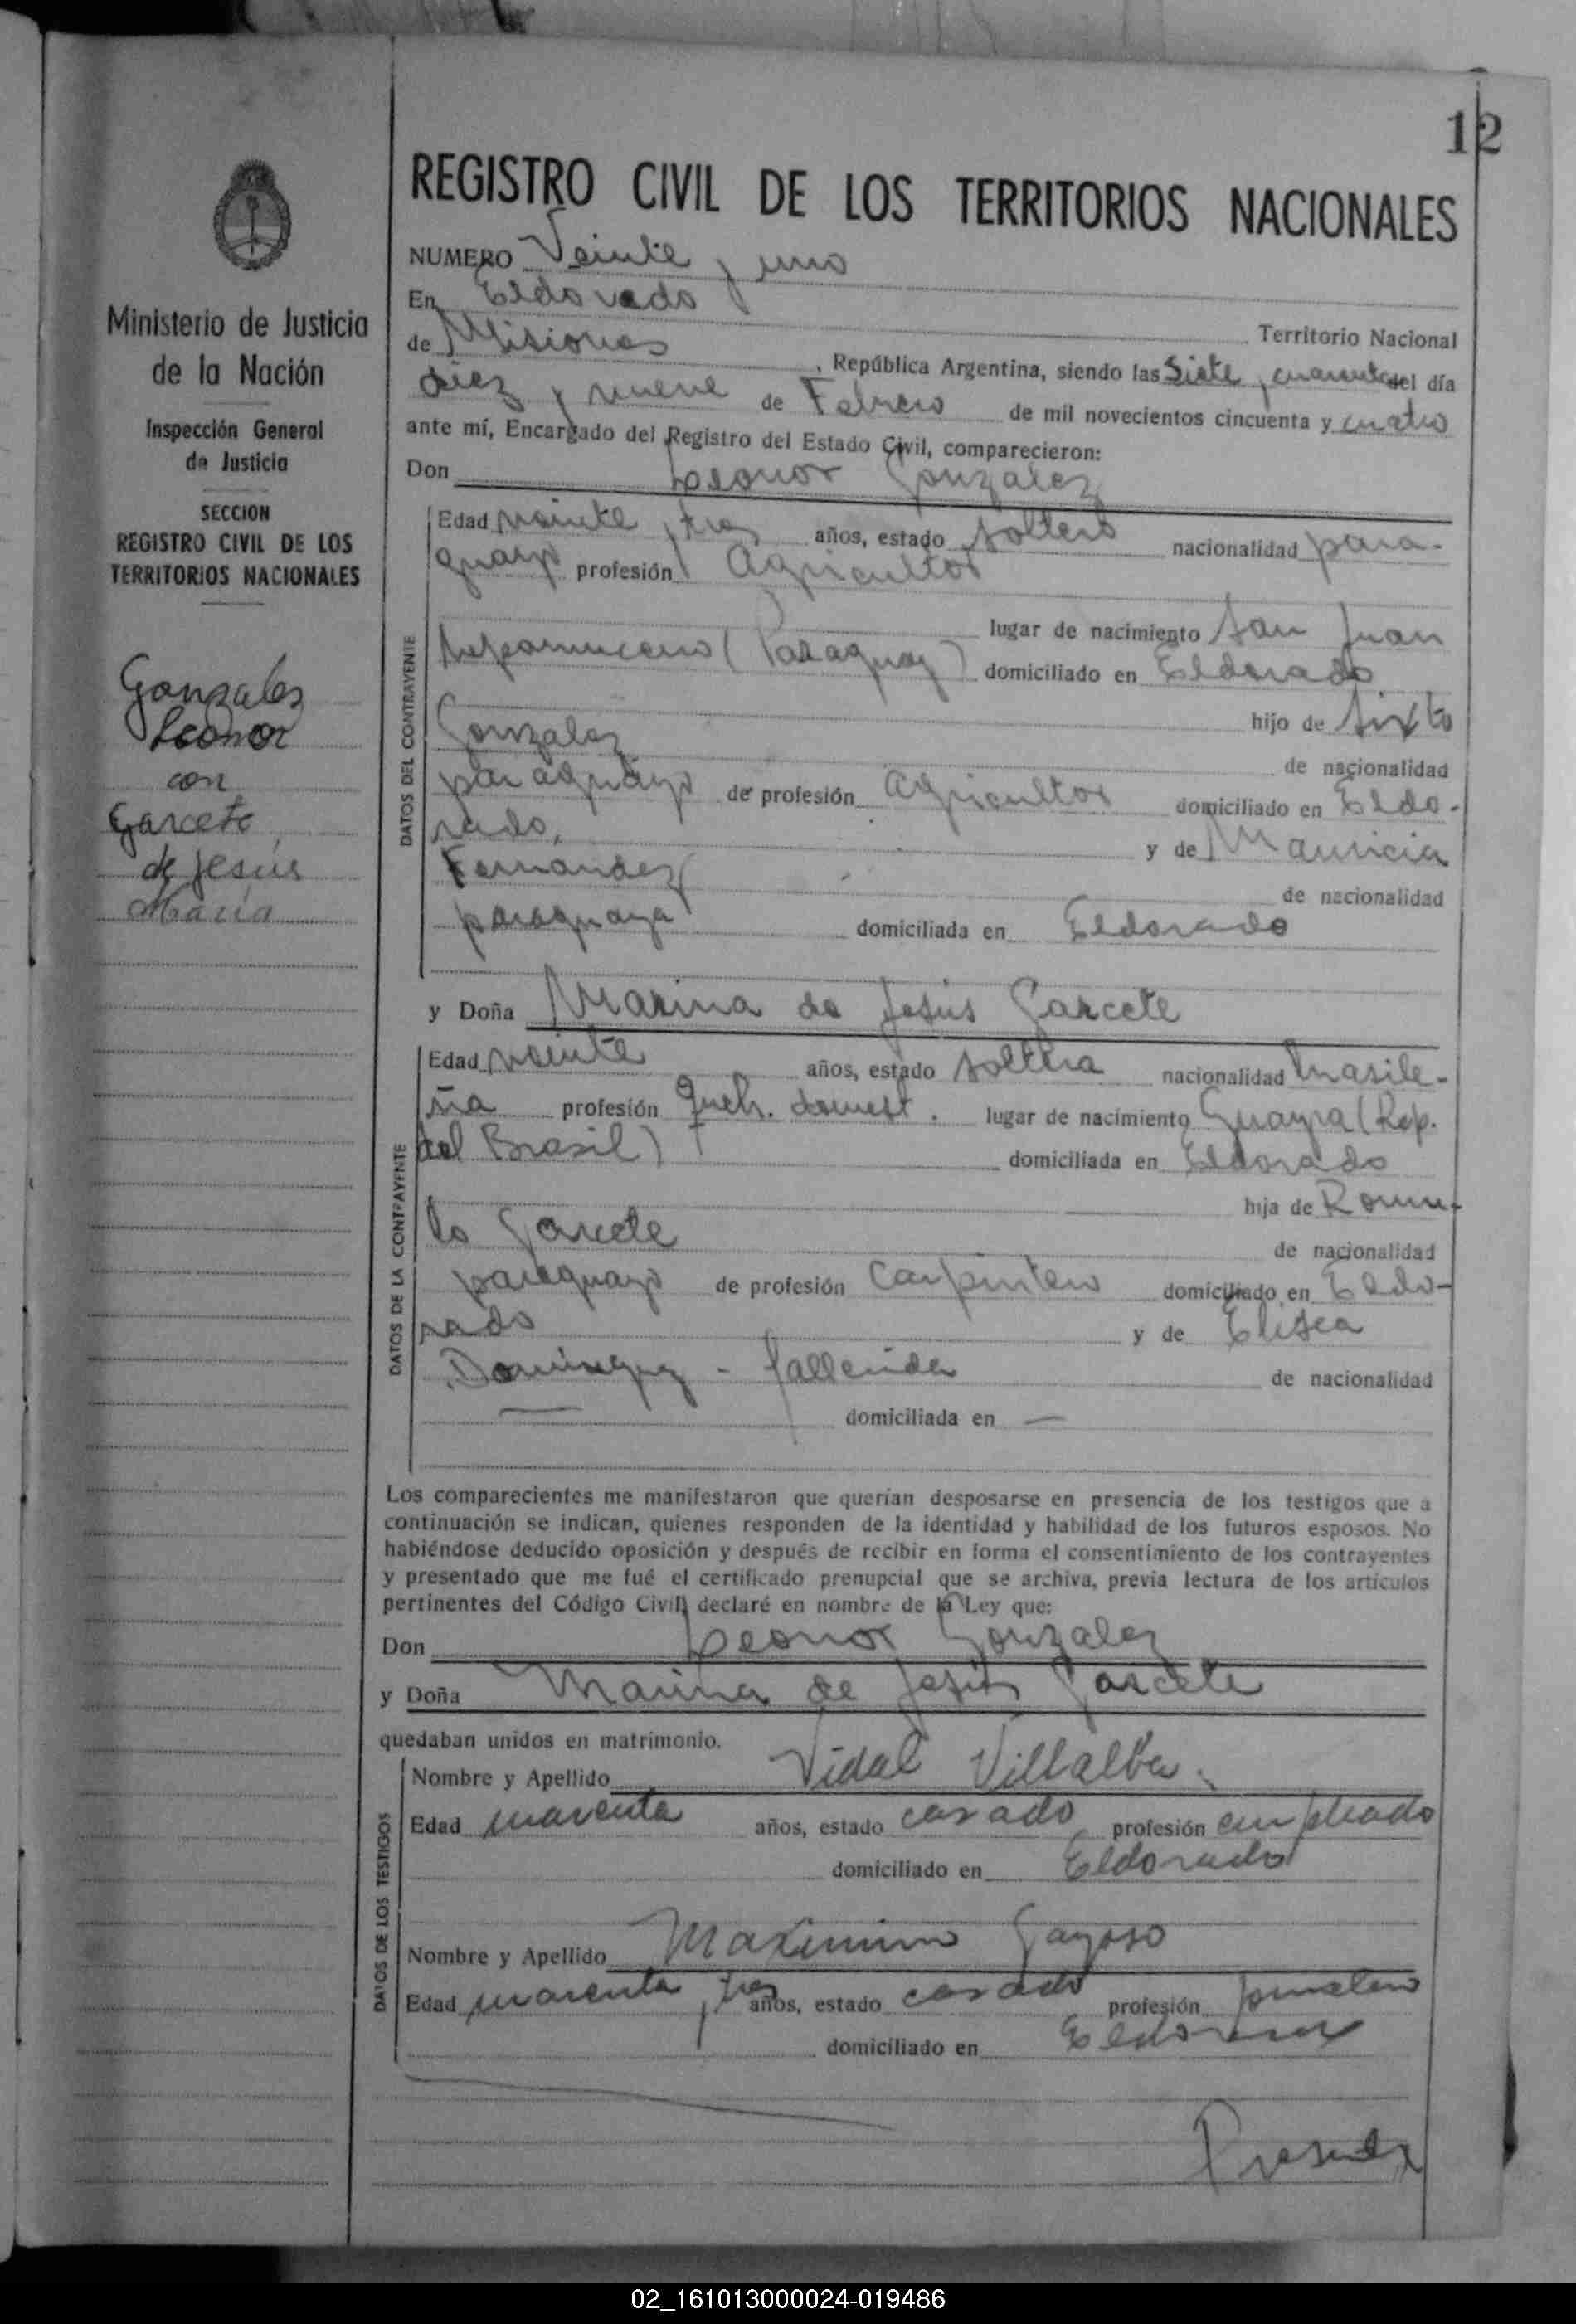 12
REGISTRO CIVIL DE LOS TERRITORIOS NACIONALES
Ministerio de Justicia
de la Nación
Inspección General
de Justicia
SECCION
REGISTRO CIVIL DE LOS
TERRITORIOS NACIONALES
Gonzales
Leonor
con
Garcete
de Jesús
Maria
NUMERO Veinte y uno
En Eldorado
Territorio Nacional
de Misiones, República Argentina, siendo las Siete y cuarenta del día
diez y nueve de Febrero de mil novecientos cincuenta y cuatro
ante mí, Encargado del Registro del Estado Civil, comparecieron:
Don Leonor Gonzalez
DATOS DEL CONTRAYENTE
Edad veinte y tres años, estado soltero nacionalidad para-
guayo profesión Agricultor
lugar de nacimiento San Juan
Nepomuceno (Paraguay) domiciliado en Eldorado
hijo de Sixto
Gonzalez
de nacionalidad
paraguayo de profesión Agricultor domiciliado en Eldo-
rado, y de Mauricia
Fernandez
de nacionalidad
paraguaya domiciliada en Eldorado
y Doña Marina de Jesús Garcete
DATOS DE LA CONTRAYENTE
Edad veinte años, estado soltera nacionalidad brasile-
ña profesión Queh. domest. lugar de nacimiento Guayra (Rep.
del Brasil) domiciliada en Eldorado
hija de Romu-
lo Garcete
de nacionalidad
paraguayo de profesión Carpintero domiciliado en Eldo-
rado y de Elisea
Dominguez - fallecida
de nacionalidad
— domiciliada en —
Los comparecientes me manifestaron que querían desposarse en presencia de los testigos que a
continuación se indican, quienes responden de la identidad y habilidad de los futuros esposos. No
habiéndose deducido oposición y después de recibir en forma el consentimiento de los contrayentes
y presentado que me fué el certificado prenupcial que se archiva, previa lectura de los artículos
pertinentes del Código Civil, declaré en nombre de la Ley que:
Don Leonor Gonzalez
y Doña Marina de Jesús Garcete
quedaban unidos en matrimonio.
DATOS DE LOS TESTIGOS
Nombre y Apellido Vidal Villalba.
Edad cuarenta años, estado casado profesión empleado
domiciliado en Eldorado
Nombre y Apellido Maximino Gayoso
Edad cuarenta y tres años, estado casado profesión jornalero
domiciliado en Eldorado
02_161013000024-019486